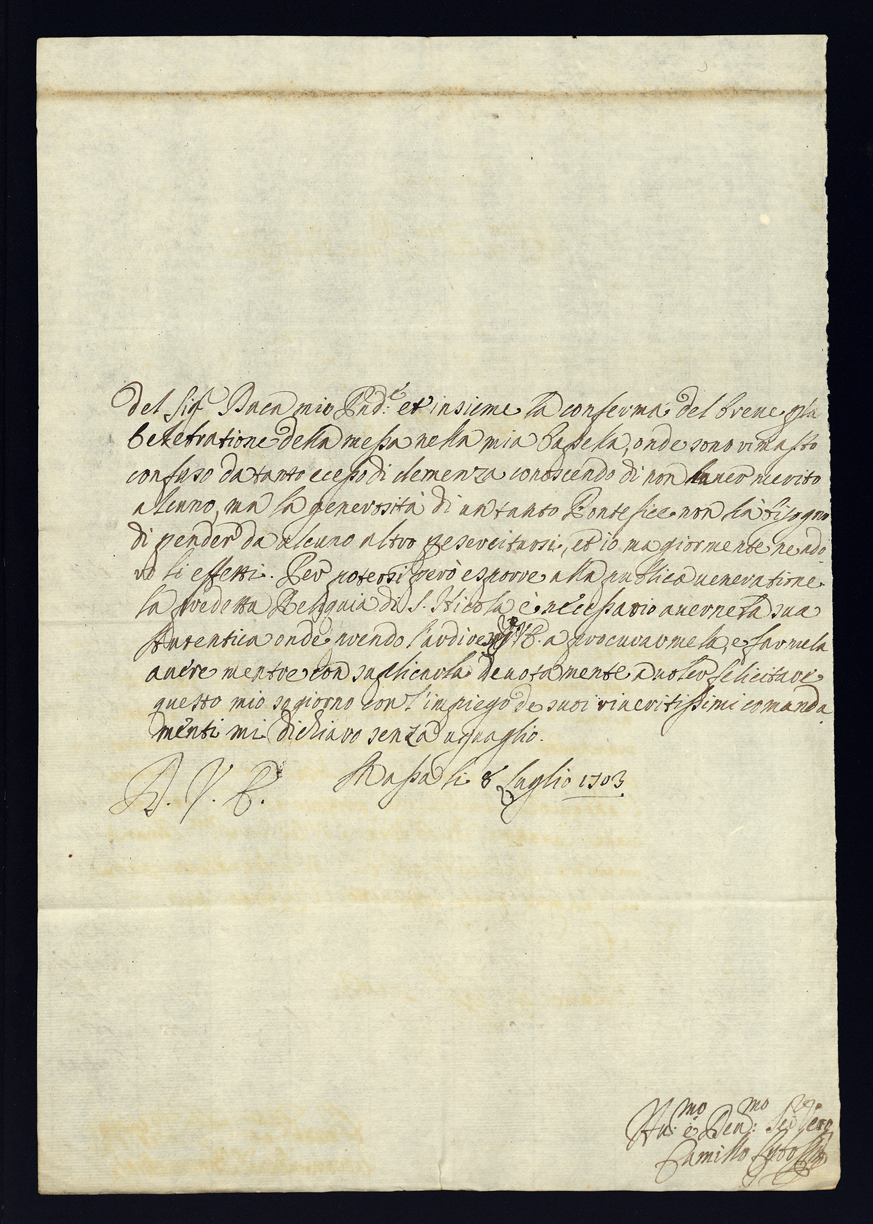 del Sig.r Duca mio Pad.e et insieme la conferma del breve p la
Celebratione della messa nella mia Capela, onde sono rimasto
confuso da tanto ecesso di clemenza conoscendo di non haver merito
alcuno, ma la generosità di un tanto Pontefice non hà bisogno
di pender da alcuno altro p esercitarsi, et io magiormente ne ado
ro li effetti. Per potersi però esporre alla publica veneratione
la predetta Reliquia di S. Nicola è necessario averne la sua
Autentica onde prendo l'ardire V. E. a procurarmela, e farmela
avére mentre con suplicarla devotamente a voler felicitare
questo mio sogiorno con l'impiego de suoi riveritissimi comanda
menti mi dichiaro senza uguaglio.
D. V. E. Massa li 8 Luglio 1703
Hu:mo e Dev:mo Ser
Camillo Cybo